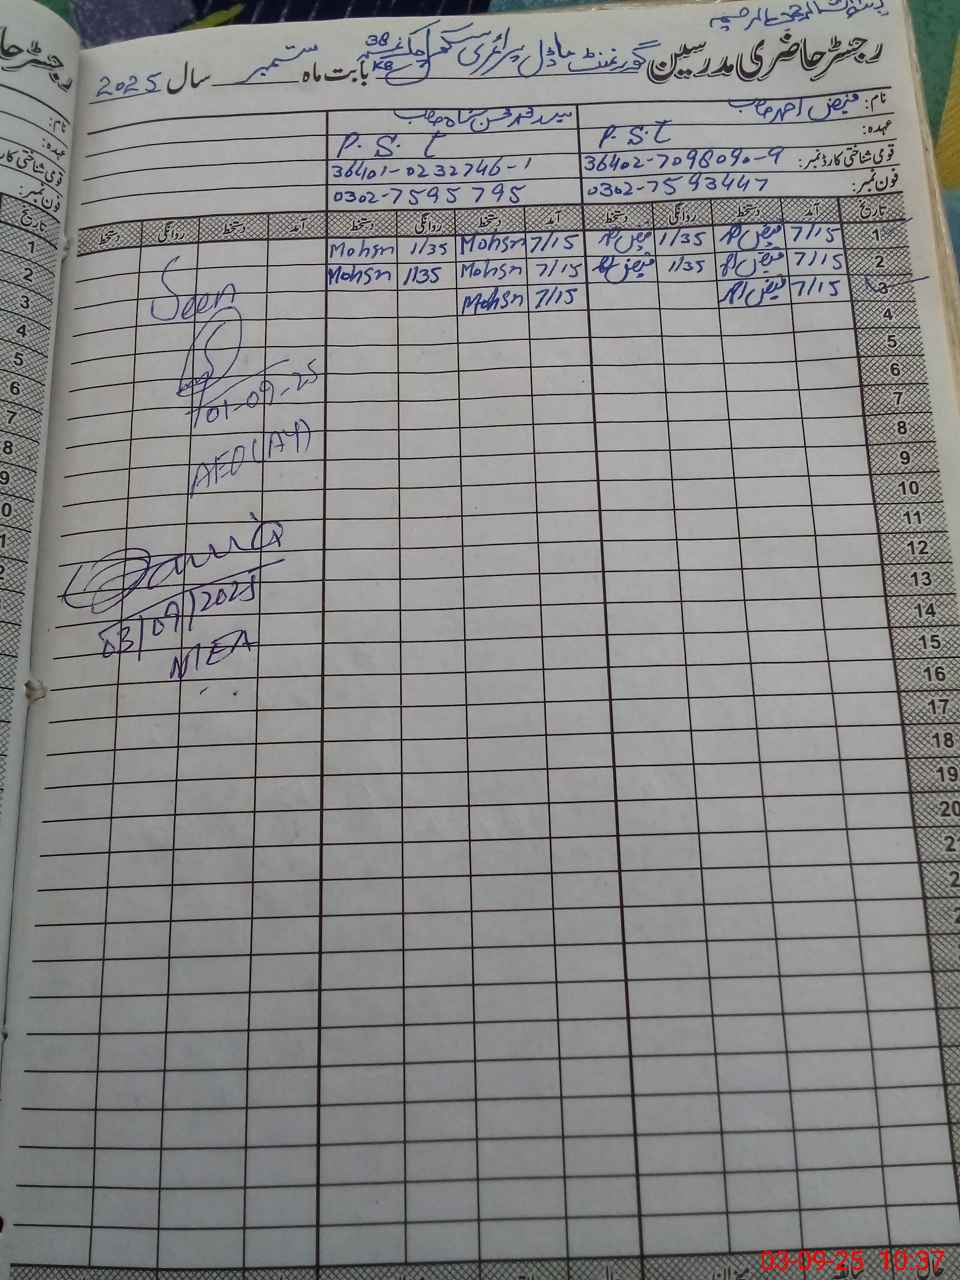 رجسٹر حاضری مدرسین گورنمنٹ ماڈل پرائمری سکول چک نمبر 38 KB بابت ماہ ستمبر سال 2025
نام: فیض احمد صاحب سید محمد محسن شاہ صاحب
عہدہ: P.S.T P.S.T
قومی شناختی کارڈ نمبر: 36402-7098090-9 36401-0232746-1
فون نمبر: 0302-7593447 0302-7595795
تاریخ آمد دستخط روانگی دستخط آمد دستخط روانگی دستخط آمد دستخط روانگی دستخط
1 7/15 فیض احمد 1/35 فیض احمد 7/15 Mohsn 1/35 Mohsn
2 7/15 فیض احمد 1/35 فیض احمد 7/15 Mohsn 1/35 Mohsn
3 7/15 فیض احمد 7/15 Mohsn
4
5
6
7
8
9
10
11
12
13
14
15
16
17
18
19
20
Seen
01-09-25
AEO (AY)
03/09/2025
MEA
03-09-25 10:37